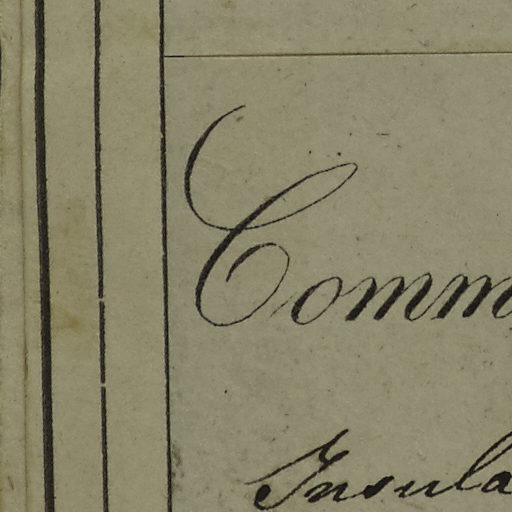 Comm
Insula